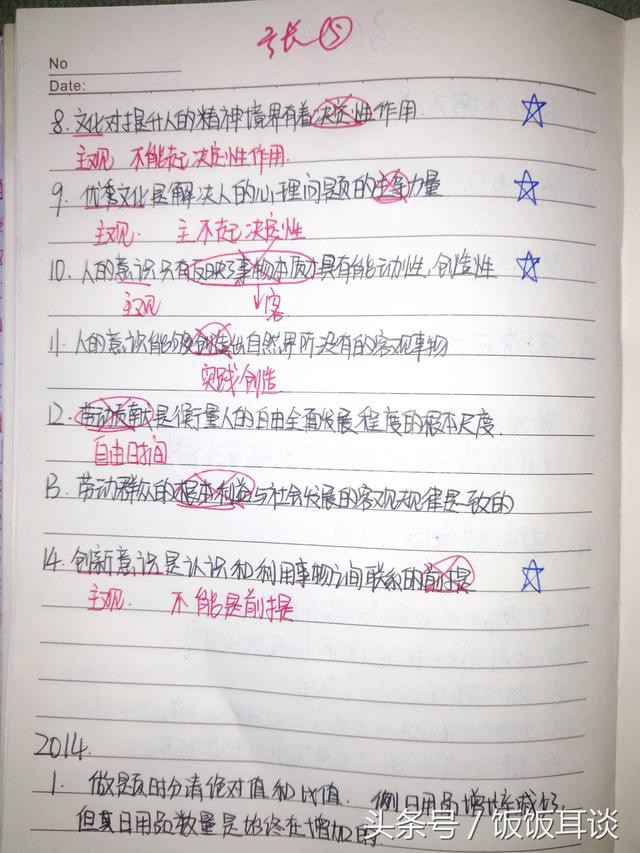 ⑤
No
Date:
8. 文化对提升人的精神境界有着决定性作用.
主观 不能起决定性作用.
9. 优秀文化是解决人的心理问题的主导力量
主观. 主不起决定性
10. 人的意识只有反映了事物本质才具有能动性、创造性
主观 ↓客
11. 人的意识能够创造出自然界所没有的客观事物
实践创造
12. 劳动贡献大是衡量人的自由全面发展程度的根本尺度.
自由时间
13. 劳动群众的根本利益与社会发展的客观规律是一致的
14. 创新意识是认识和利用事物之间联系的前提
主观. 不能是前提
2014.
1. 做题时分清绝对值和比值. 例日用品增长率减少,
但其日用品数量是始终在增加的.
头条号 / 饭饭耳谈